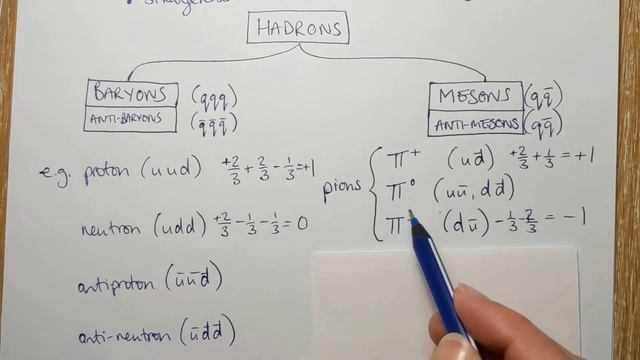 HADRONS
BARYONS (qqq)
ANTI-BARYONS (q̄q̄q̄)
MESONS (qq̄)
ANTI-MESONS (qq̄)
e.g. proton (uud) +2/3 + 2/3 - 1/3 = +1
neutron (udd) +2/3 - 1/3 - 1/3 = 0
antiproton (ūūd̄)
anti-neutron (ūd̄d̄)
pions
π⁺ (ud̄) +2/3 + 1/3 = +1
π⁰ (uū, dd̄)
π⁻ (dū) - 1/3 - 2/3 = -1